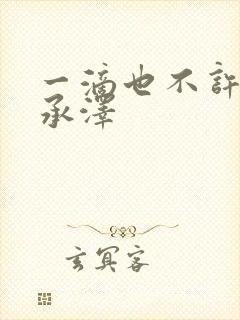 一滴也不許
承澤
玄冥客